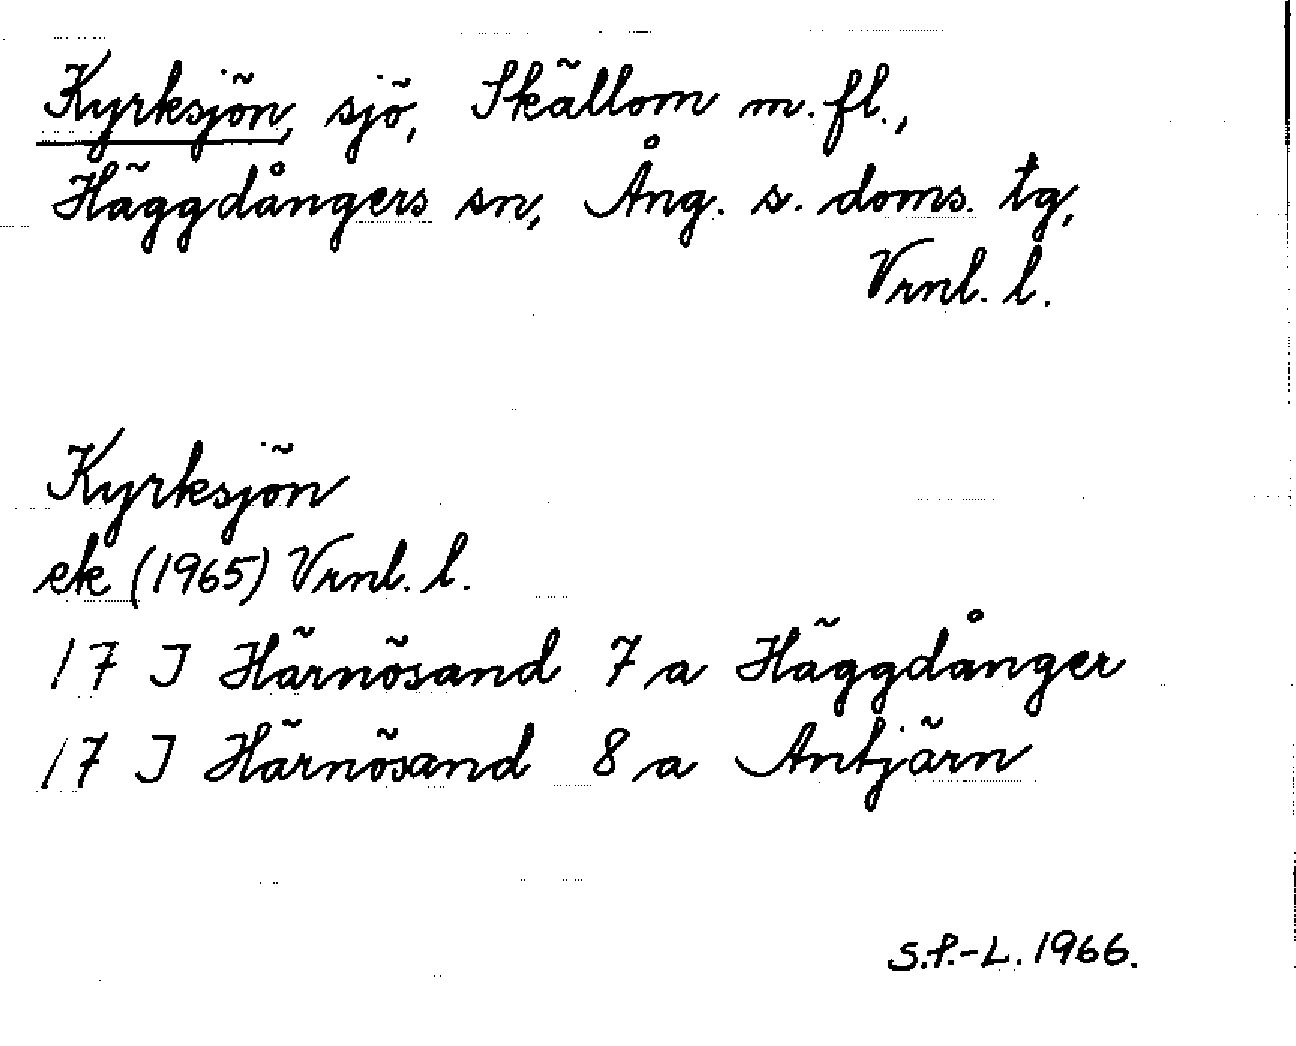 Kyrksjön, sjö, Skällom m.fl.,
Häggdångers sn, Ång. s. doms. tg,
Vrnl. l.
Kyrksjön
ek (1965) Vrnl. l.
17 I Härnösand 7 a Häggdånger
17 I Härnösand 8 a Antjärn
S.P.-L. 1966.